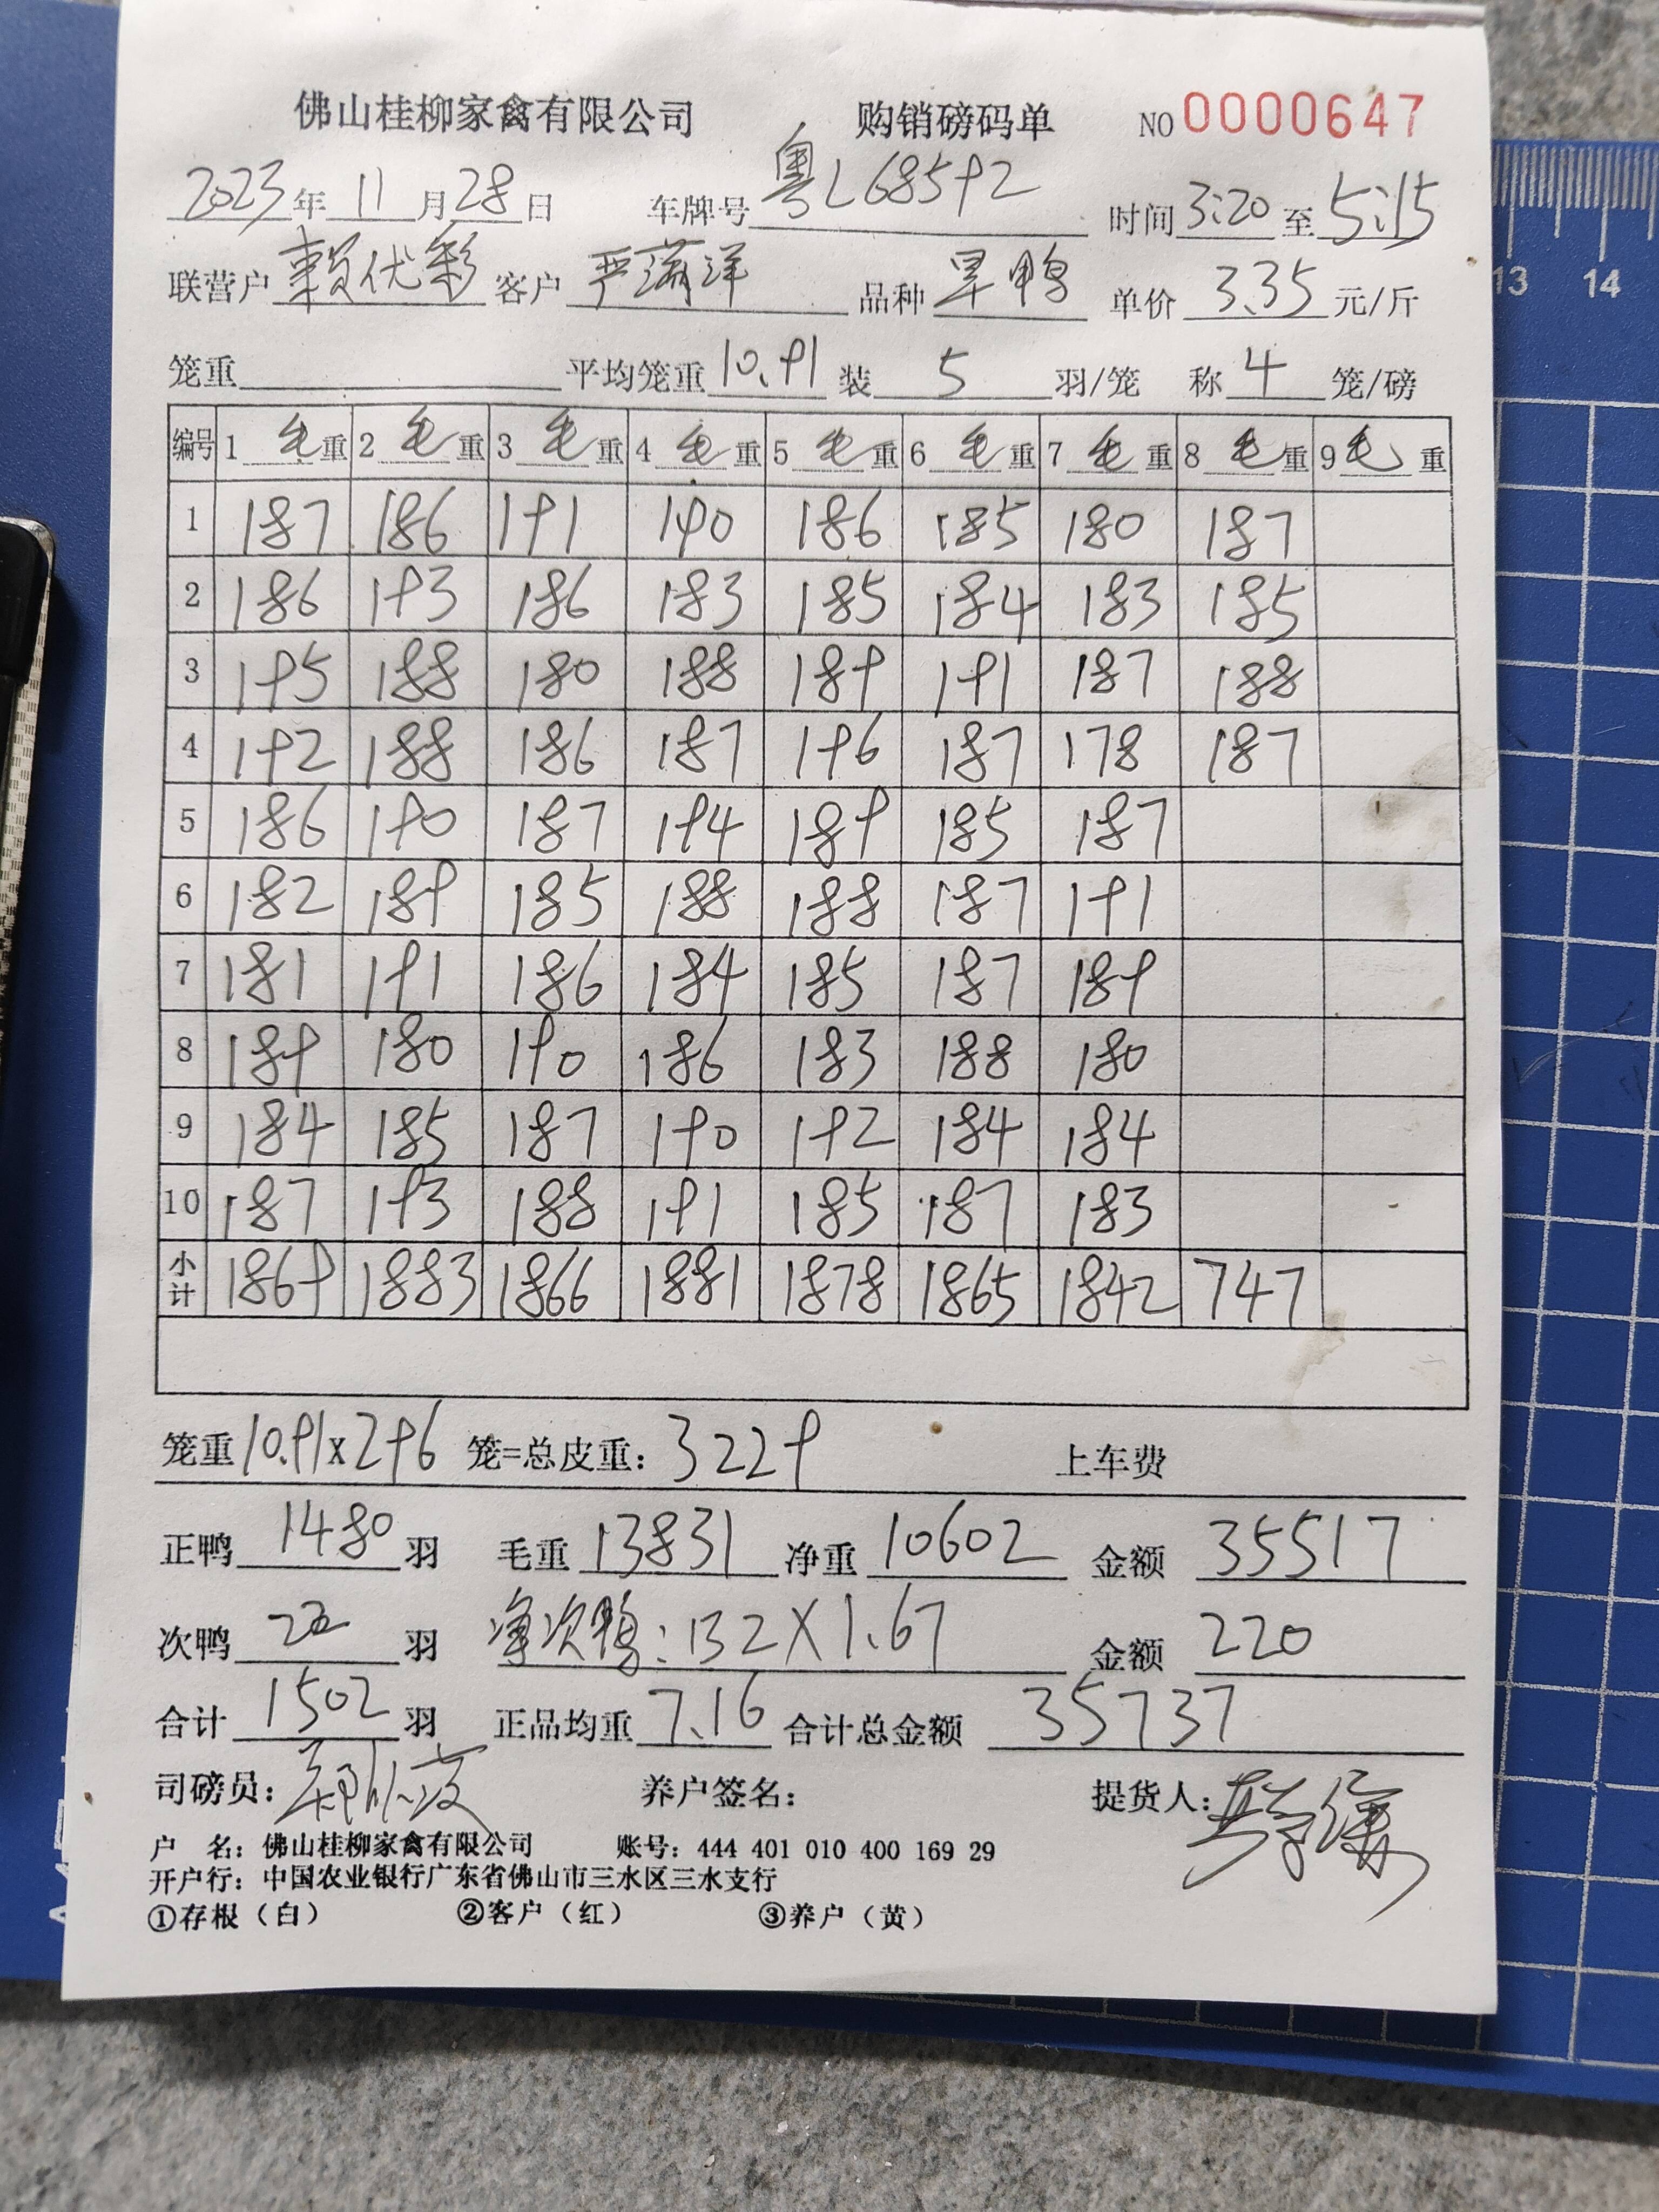 佛山桂柳家禽有限公司 购销磅码单 NO 0000647
2023年11月28日 车牌号 粤L68592 时间 3:20 至 5:15
联营户 赖优彩 客户 严满洋 品种 旱鸭 单价 3.35 元/斤
笼重 平均笼重 10.91 装 5 羽/笼 称 4 笼/磅
编号 1 毛重 2 毛重 3 毛重 4 毛重 5 毛重 6 毛重 7 毛重 8 毛重 9 毛重
1 187 186 191 190 186 185 180 187
2 186 193 186 183 185 184 183 185
3 195 188 180 188 189 191 187 188
4 192 188 186 187 196 187 178 187
5 186 190 187 194 189 185 187
6 182 189 185 188 188 187 191
7 181 191 186 184 185 187 189
8 189 180 190 186 183 188 180
9 184 185 187 190 192 184 184
10 187 193 188 191 185 187 183
小计 1869 1883 1866 1881 1878 1865 1842 747
笼重 10.91x296 笼=总皮重: 3229 上车费
正鸭 1480 羽 毛重 13831 净重 10602 金额 35517
次鸭 22 羽 净次鸭: 132X1.67 金额 220
合计 1502 羽 正品均重 7.16 合计总金额 35737
司磅员: 养户签名: 提货人:
户 名: 佛山桂柳家禽有限公司 账号: 444 401 010 400 169 29
开户行: 中国农业银行广东省佛山市三水区三水支行
①存根（白） ②客户（红） ③养户（黄）
13 14